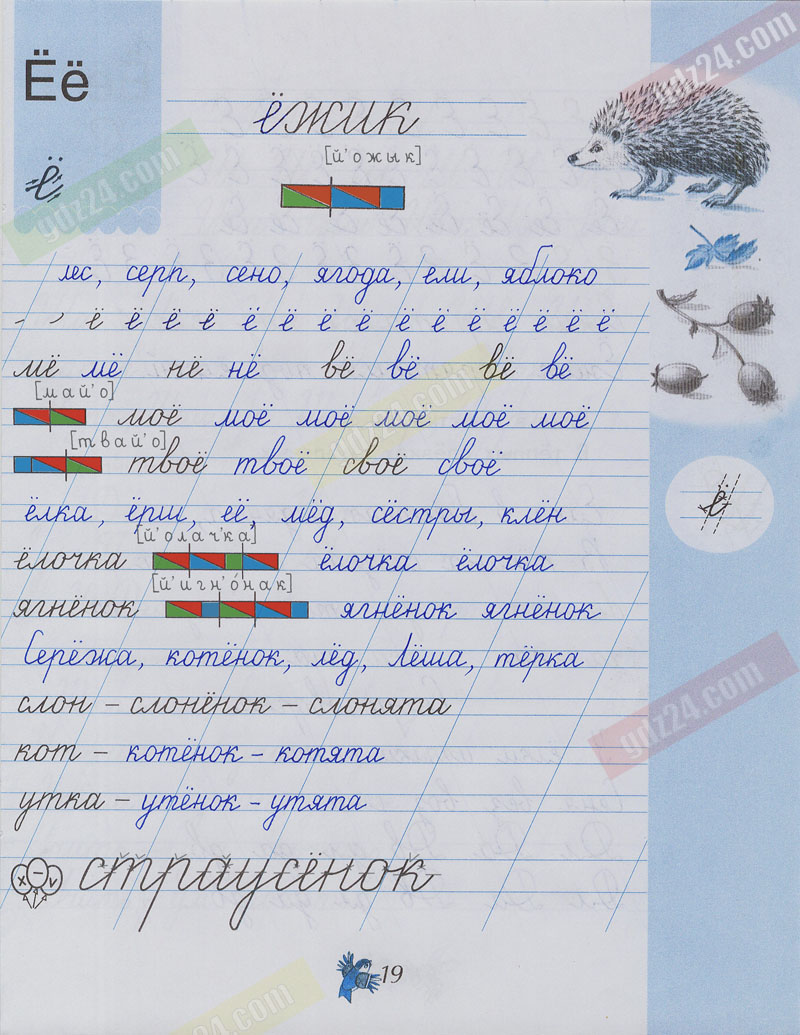 Ёё
gdz24.com
ёжик
[й'ожык]
ё
gdz24.com
лес, серп, сено, ягода, ели, яблоко
ё ё ё ё ё ё ё ё ё ё ё ё ё ё ё
мё мё нё нё вё вё вё вё
[май'о]
моё моё моё моё моё моё
[твай'о]
gdz24.com
твоё твоё своё своё
ё
ёлка, ёрш, её, мёд, сёстры, клён
[й'олач'ка]
ёлочка ёлочка ёлочка
[й'игн'о́нак]
ягнёнок ягнёнок ягнёнок
Серёжа, котёнок, лёд, Лёша, тёрка
слон – слонёнок – слонята
gdz24.com
кот – котёнок – котята
утка – утёнок – утята
х – v
страусёнок
19
gdz24.com